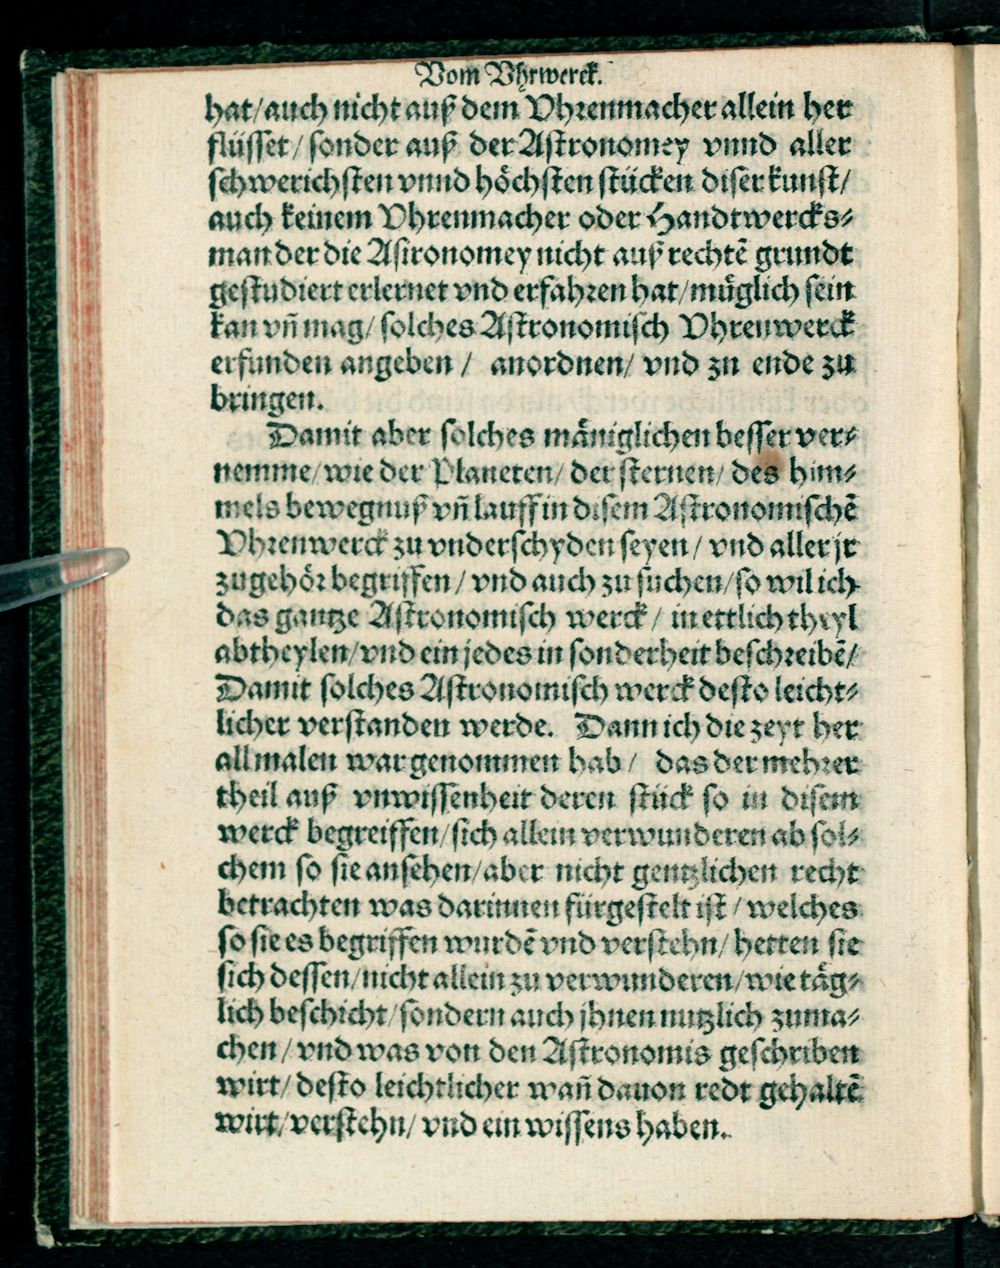 Vom Vhrwerck.
hat/auch nicht auß dem Vhrenmacher allein her
flüsset/ sonder auß der Astronomey vnnd aller
schwerichsten vnnd höchsten stücken diser kunst/
auch keinem Vhrenmacher oder Handtwercks⸗
man der die Astronomey nicht auß rechtē grundt
gestudiert erlernet vnd erfahren hat/müglich sein
kan vñ mag/ solches Astronomisch Vhrenwerck
erfunden angeben / anordnen/ vnd zu ende zu
bringen.
Damit aber solches mäniglichen besser ver⸗
nemme/wie der Planeten/ der sternen/ des him⸗
mels bewegnuß vñ lauff in disem Astronomischē
Vhrenwerck zu vnderschyden seyen/ vnd aller jr
zugehör begriffen/ vnd auch zu suchen/so wil ich
das gantze Astronomisch werck/ in ettlich theyl
abtheylen/vnd ein jedes in sonderheit beschreibē/
Damit solches Astronomisch werck desto leicht⸗
licher verstanden werde. Dann ich die zeyt her
allmalen war genommen hab/ das der mehrer
theil auß vnwissenheit deren stück so in disem
werck begreiffen/sich allein verwunderen ab sol⸗
chem so sie ansehen/aber nicht gentzlichen recht
betrachten was darinnen fürgestelt ist/welches
so sie es begriffen wurdē vnd verstehn/ hetten sie
sich dessen/nicht allein zu verwunderen/wie täg⸗
lich beschicht/sondern auch jhnen nutzlich zuma⸗
chen/vnd was von den Astronomis geschriben
wirt/ desto leichtlicher wañ dauon redt gehaltē
wirt/verstehn/ vnd ein wissens haben.